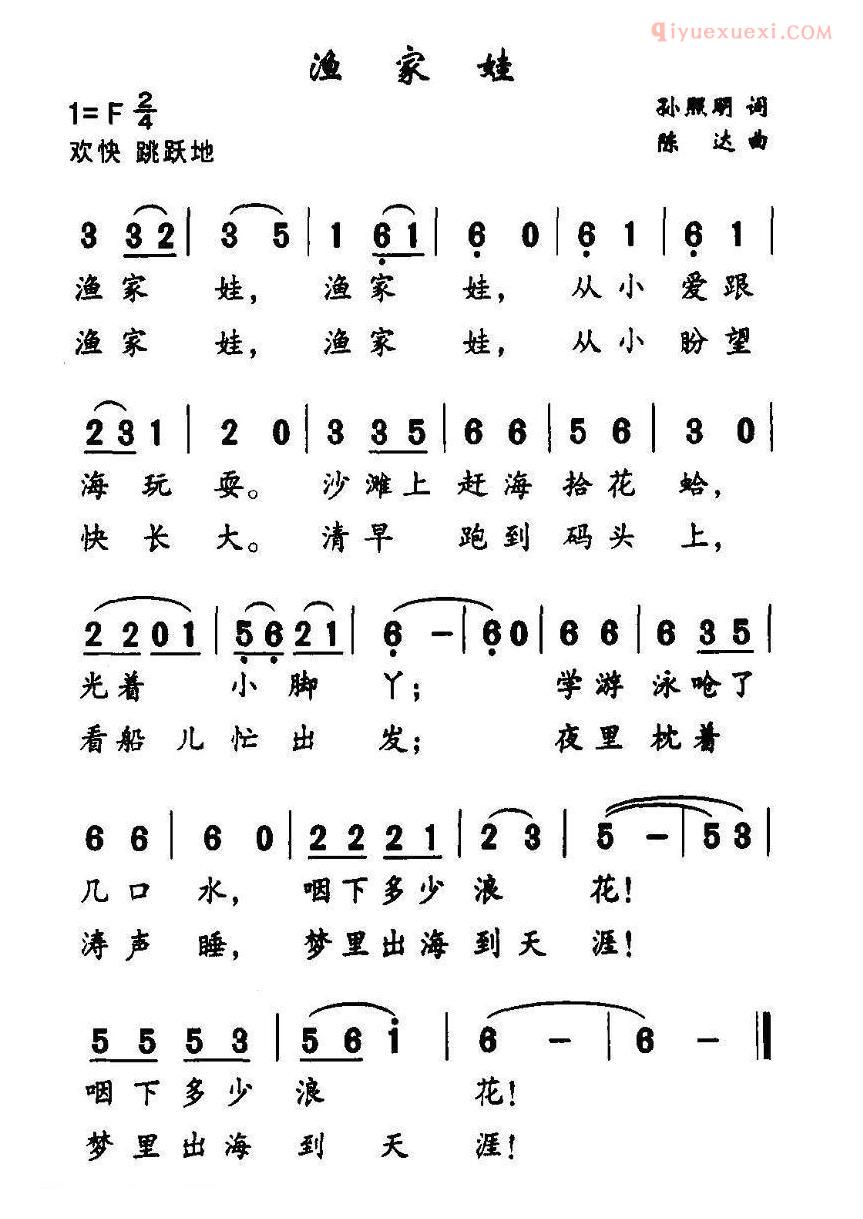 qiyuexuexi.com
渔 家 娃
1=F 2/4
孙照明 词
欢快 跳跃地
陈 达 曲
3 3 2 | 3 5 | 1 6̣ 1 | 6̣ 0 | 6̣ 1 | 6̣ 1 |
渔家 娃, 渔家 娃, 从小 爱跟
渔家 娃, 渔家 娃, 从小 盼望
2 3 1 | 2 0 | 3 3 5 | 6 6 | 5 6 | 3 0 |
海玩 耍。 沙滩上 赶海 拾花 蛤,
快长 大。 清早 跑到 码头 上,
2 2 0 1 | 5̣ 6̣ 2 1 | 6̣ - | 6̣ 0 | 6 6 | 6 3 5 |
光着 小脚 丫; 学游 泳呛了
看船儿 忙出 发; 夜里 枕着
6 6 | 6 0 | 2 2 2 1 | 2 3 | 5 - | 5 3 |
几口 水, 咽下多少 浪 花!
涛声 睡, 梦里出海 到天 涯!
5 5 5 3 | 5 6 i | 6 - | 6 - ‖
咽下多少 浪 花!
梦里出海 到 天 涯!